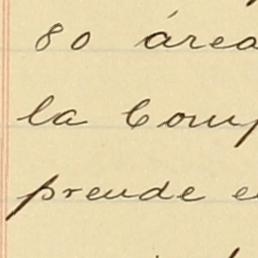 80 área
la Comp
prende e